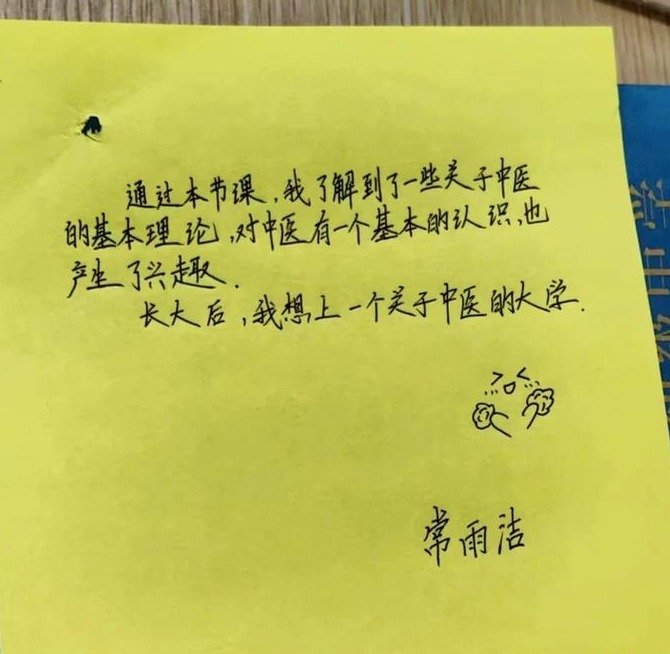 通过本节课,我了解到了一些关于中医
的基本理论,对中医有一个基本的认识,也
产生了兴趣.
长大后,我想上一个关于中医的大学.
常雨洁